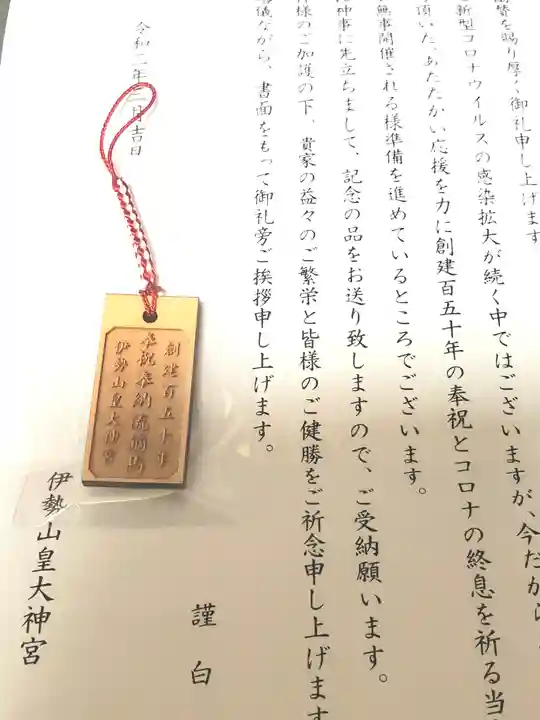 協賛を賜り厚く御礼申し上げます
新型コロナウイルスの感染拡大が続く中ではございますが、今だから
頂いた、あたたかい応援を力に創建百五十年の奉祝とコロナの終息を祈る当
無事開催される様準備を進めているところでございます。
神事に先立ちまして、記念の品をお送り致しますので、ご受納願います。
様のご加護の下、貴家の益々のご繁栄と皆様のご健勝をご祈念申し上げます
儀ながら、書面をもって御礼旁ご挨拶申し上げます。
謹白
令和二年 月吉日
伊勢山皇大神宮
創建百五十年
奉祝奉納流鏑馬
伊勢山皇大神宮